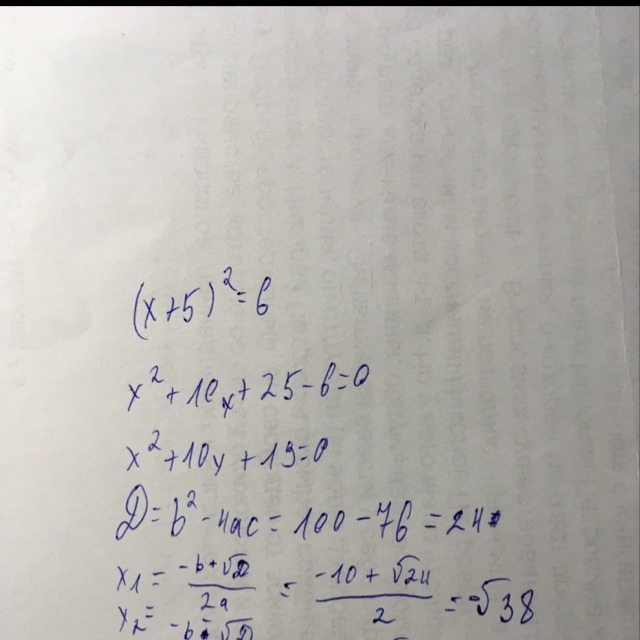 (x+5)²=6
x²+10x+25-6=0
x²+10x+19=0
D=b²-4ac=100-76=24
x1= -b+√D / 2a = -10+√24 / 2 = -√38
x2= -b-√D